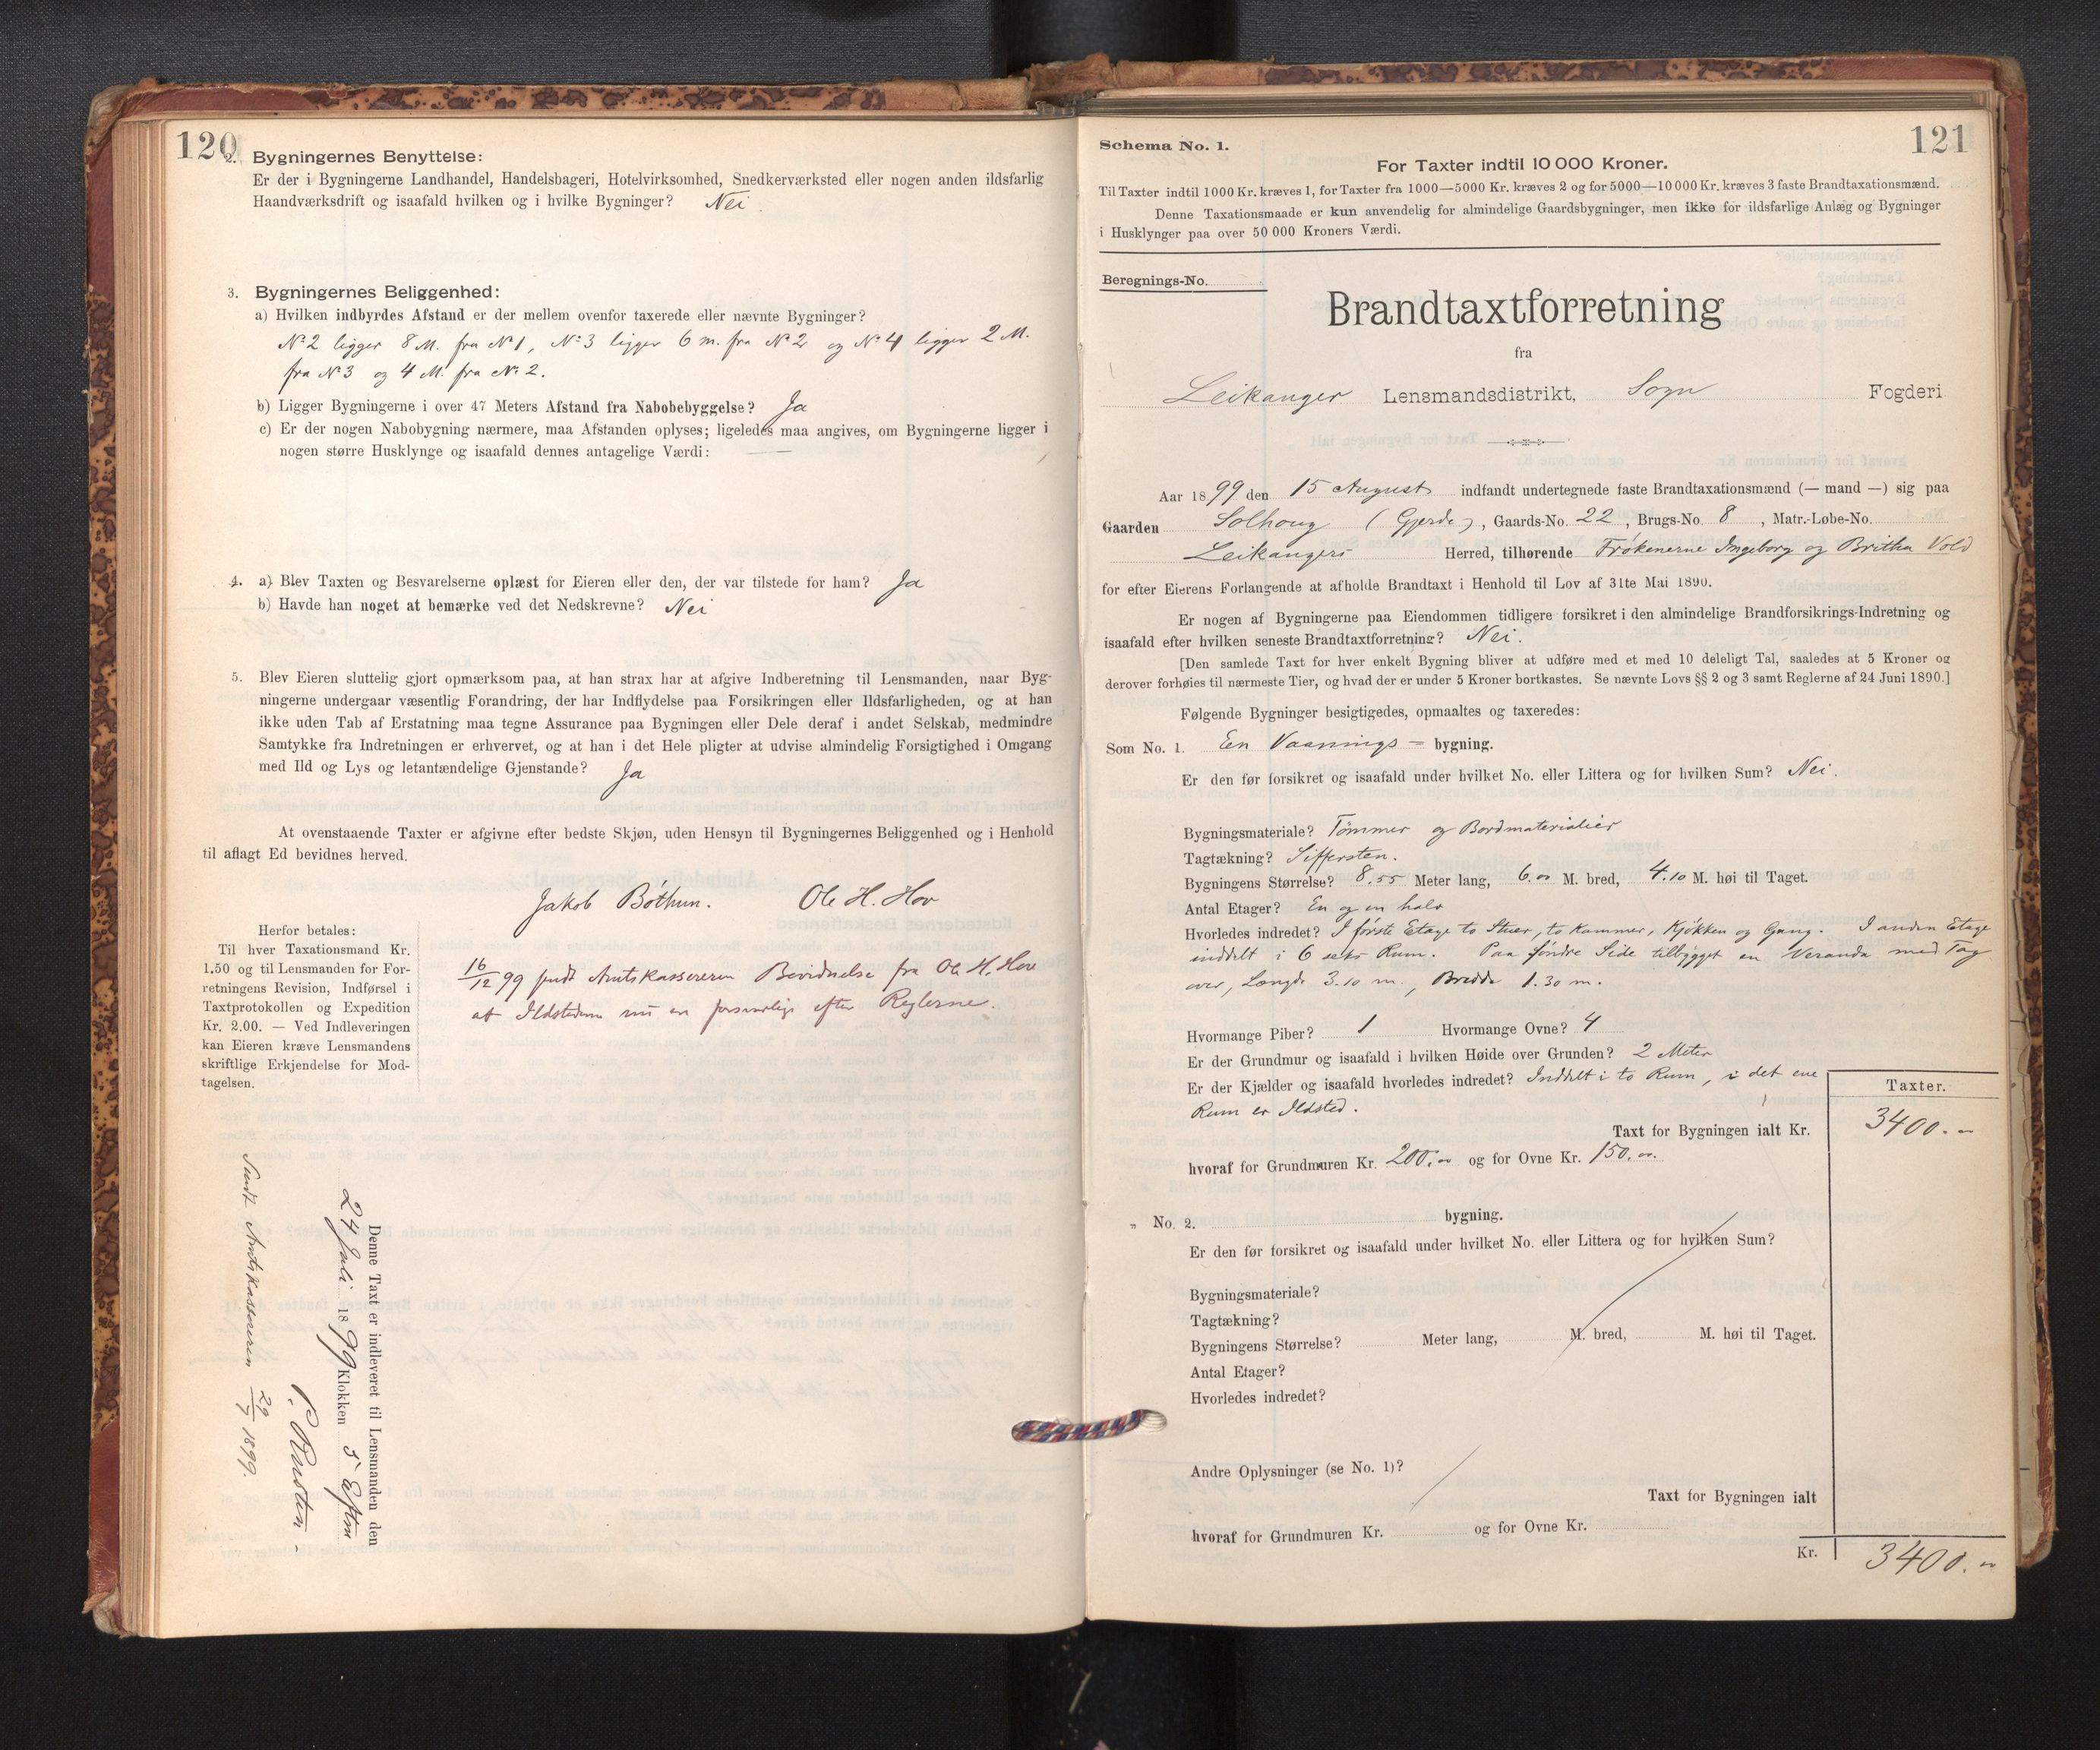 120
2. Bygningernes Benyttelse:
Er der i Bygningerne Landhandel, Handelsbageri, Hotelvirksomhed, Snedkerværksted eller nogen anden ildsfarlig
Haandværksdrift og isaafald hvilken og i hvilke Bygninger? Nei.
3. Bygningernes Beliggenhed:
a) Hvilken indbyrdes Afstand er der mellem ovenfor taxerede eller nævnte Bygninger?
No 2 ligger 8 M. fra No 1, No 3 ligger 6 m. fra No 2 og No 4 ligger 2 M.
fra No 3 og 4 M. fra No 2.
b) Ligger Bygningerne i over 47 Meters Afstand fra Nabobebyggelse? Ja
c) Er der nogen Nabobygning nærmere, maa Afstanden oplyses; ligeledes maa angives, om Bygningerne ligger i
nogen større Husklynge og isaafald dennes antagelige Værdi: —
4. a) Blev Taxten og Besvarelserne oplæst for Eieren eller den, der var tilstede for ham? Ja
b) Havde han noget at bemærke ved det Nedskrevne? Nei
5. Blev Eieren sluttelig gjort opmærksom paa, at han strax har at afgive Indberetning til Lensmanden, naar Byg-
ningerne undergaar væsentlig Forandring, der har Indflydelse paa Forsikringen eller Ildsfarligheden, og at han
ikke uden Tab af Erstatning maa tegne Assurance paa Bygningen eller Dele deraf i andet Selskab, medmindre
Samtykke fra Indretningen er erhvervet, og at han i det Hele pligter at udvise almindelig Forsigtighed i Omgang
med Ild og Lys og letantændelige Gjenstande? Ja
At ovenstaaende Taxter er afgivne efter bedste Skjøn, uden Hensyn til Bygningernes Beliggenhed og i Henhold
til aflagt Ed bevidnes herved.
Jakob Bóthun. Ole H. Hov
Herfor betales:
Til hver Taxationsmand Kr.
1.50 og til Lensmanden for For-
retningens Revision, Indførsel i
Taxtprotokollen og Expedition
Kr. 2.00. — Ved Indleveringen
kan Eieren kræve Lensmandens
skriftlige Erkjendelse for Mod-
tagelsen.
16/12 99 sendt Amtskassereren Bevidnelse fra Ole H. Hove
at Ildstederne nu er forsvarlige efter Reglerne.
Denne Taxt er indleveret til Lensmanden den
24 Juli 1899 Klokken 5 Eftm
Sendt Amtskassereren 29/7 1899.
121
Schema No. 1.
For Taxter indtil 10 000 Kroner.
Til Taxter indtil 1000 Kr. kræves 1, for Taxter fra 1000—5000 Kr. kræves 2 og for 5000—10 000 Kr. kræves 3 faste Brandtaxationsmænd.
Denne Taxationsmaade er kun anvendelig for almindelige Gaardsbygninger, men ikke for ildsfarlige Anlæg og Bygninger
i Husklynger paa over 50 000 Kroners Værdi.
Beregnings-No.
Brandtaxtforretning
fra
Leikanger Lensmandsdistrikt, Sogn Fogderi
Aar 1899 den 15 August indfandt undertegnede faste Brandtaxationsmænd (— mand —) sig paa
Gaarden Solhoug (Gjerde), Gaards-No. 22, Brugs-No. 8, Matr.-Løbe-No.
Leikangers Herred, tilhørende Frøkenerne Ingeborg og Britha Vold
for efter Eierens Forlangende at afholde Brandtaxt i Henhold til Lov af 31te Mai 1890.
Er nogen af Bygningerne paa Eiendommen tidligere forsikret i den almindelige Brandforsikrings-Indretning og
isaafald efter hvilken seneste Brandtaxtforretning? Nei.
[Den samlede Taxt for hver enkelt Bygning bliver at udføre med et med 10 deleligt Tal, saaledes at 5 Kroner og
derover forhøies til nærmeste Tier, og hvad der er under 5 Kroner bortkastes. Se nævnte Lovs §§ 2 og 3 samt Reglerne af 24 Juni 1890.]
Følgende Bygninger besigtigedes, opmaaltes og taxeredes:
Som No. 1. En Vaanings = bygning.
Er den før forsikret og isaafald under hvilket No. eller Littera og for hvilken Sum? Nei.
Bygningsmateriale? Tømmer og Bordmaterialier
Tagtækning? Siffersten.
Bygningens Størrelse? 8.55 Meter lang, 6.00 M. bred, 4.10 M. høi til Taget.
Antal Etager? En og en halv
Hvorledes indredet? I første Etage to Stuer, to Kammer, Kjøkken og Gang. I anden Etage
inddelt i 6 seks Rum. Paa søndre Side tilbygget en Veranda med Tag
over, Længde 3.10 m., Bredde 1.30 m.
Hvormange Piber? 1 Hvormange Ovne? 4
Er der Grundmur og isaafald i hvilken Høide over Grunden? 2 Meter
Er der Kjælder og isaafald hvorledes indredet? Inddelt i to Rum, i det ene
Rum er Ildsted.
Taxter.
Taxt for Bygningen ialt Kr. 3400.00
hvoraf for Grundmuren Kr. 200.00 og for Ovne Kr. 150.00.
„ No. 2. bygning.
Er den før forsikret og isaafald under hvilket No. eller Littera og for hvilken Sum?
Bygningsmateriale?
Tagtækning?
Bygningens Størrelse? Meter lang, M. bred, M. høi til Taget.
Antal Etager?
Hvorledes indredet?
Andre Oplysninger (se No. 1)?
Taxt for Bygningen ialt
hvoraf for Grundmuren Kr. og for Ovne Kr.
Kr. 3400.00